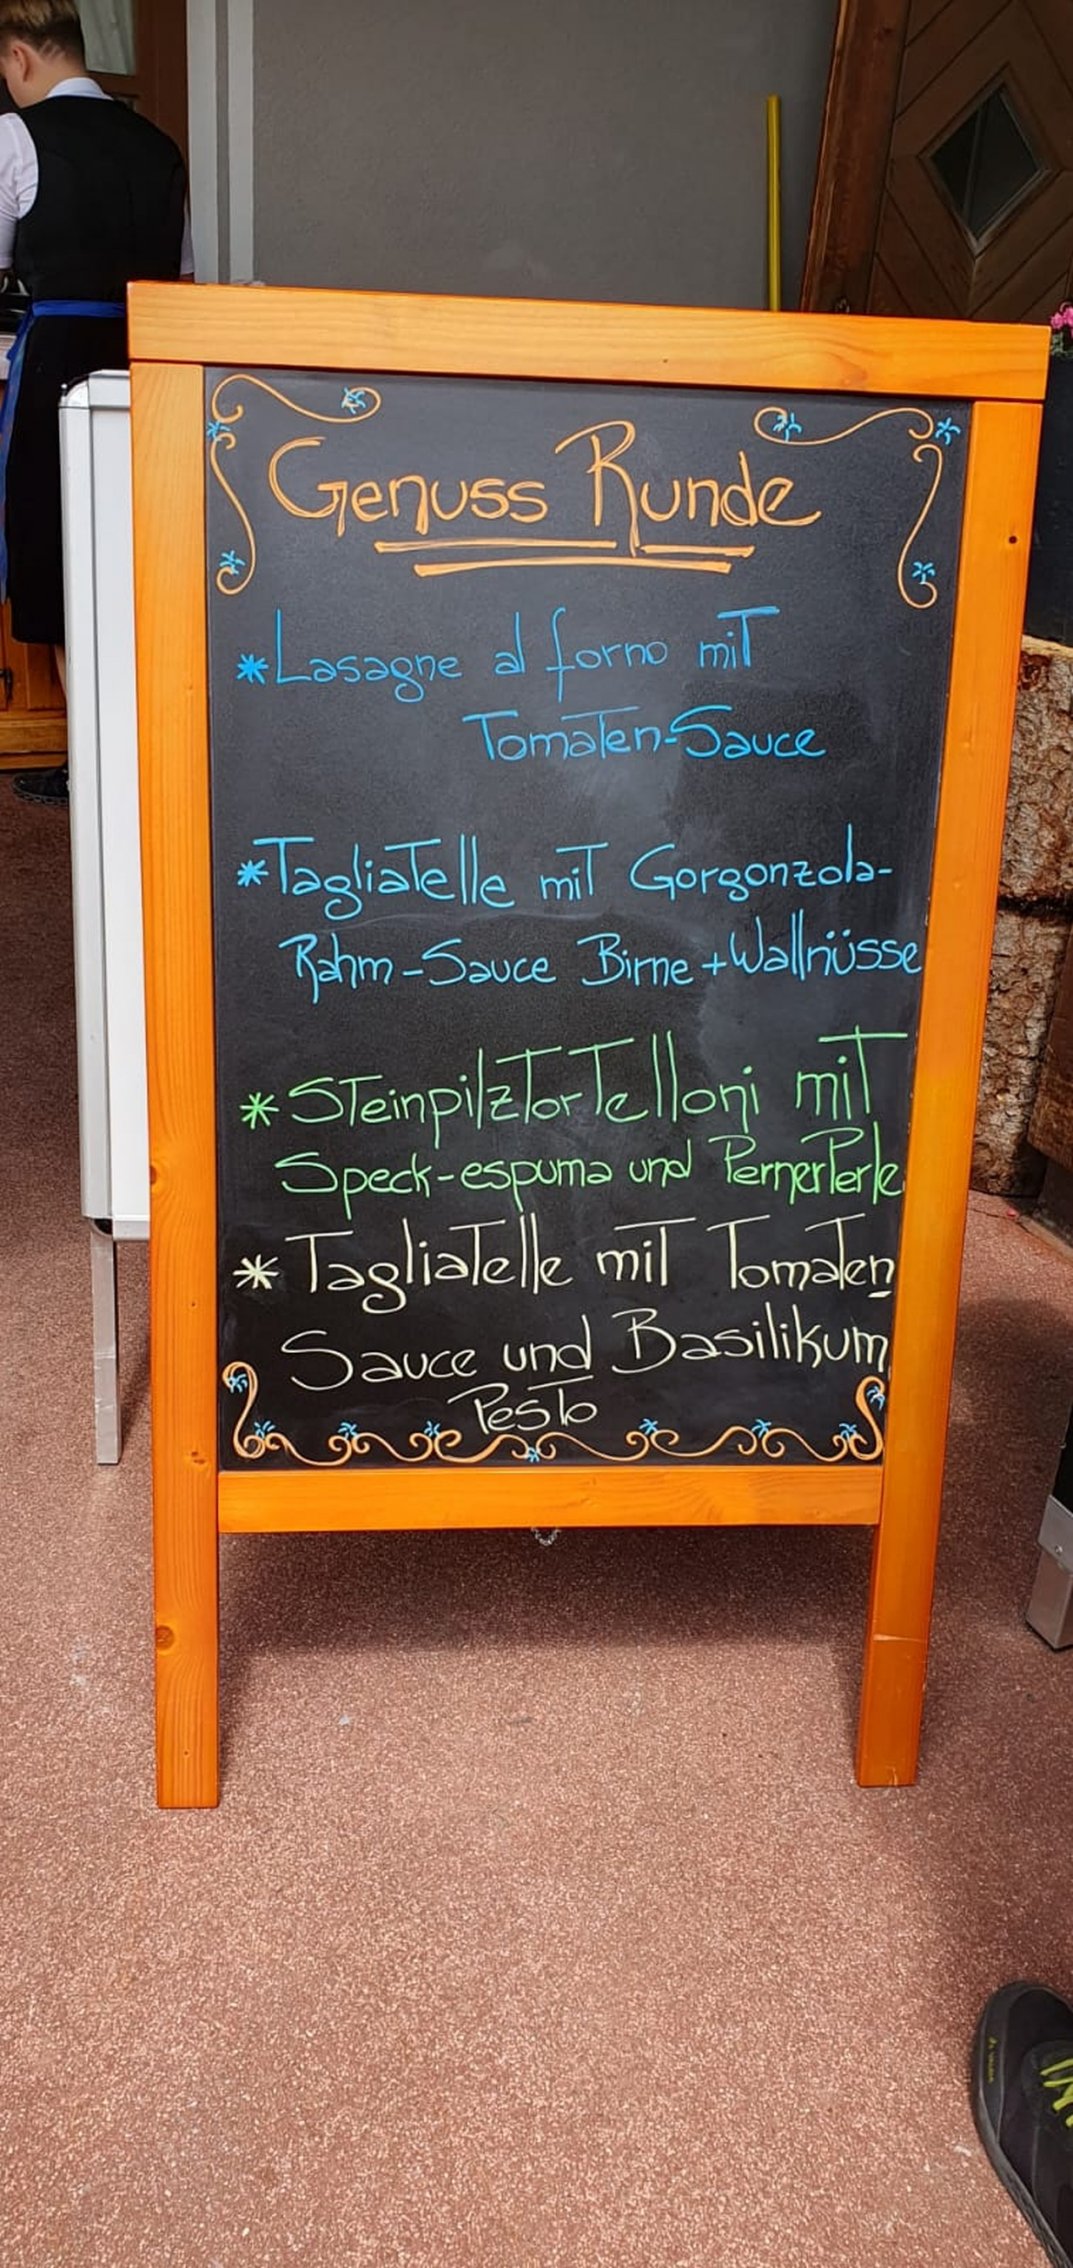 Genuss Runde
*Lasagne al forno mit
Tomaten-Sauce
*Tagliatelle mit Gorgonzola-
Rahm-Sauce Birne+Wallnüsse
*Steinpilztortelloni mit
Speck-espuma und PernerPerle
*Tagliatelle mit Tomaten
Sauce und Basilikum
Pesto